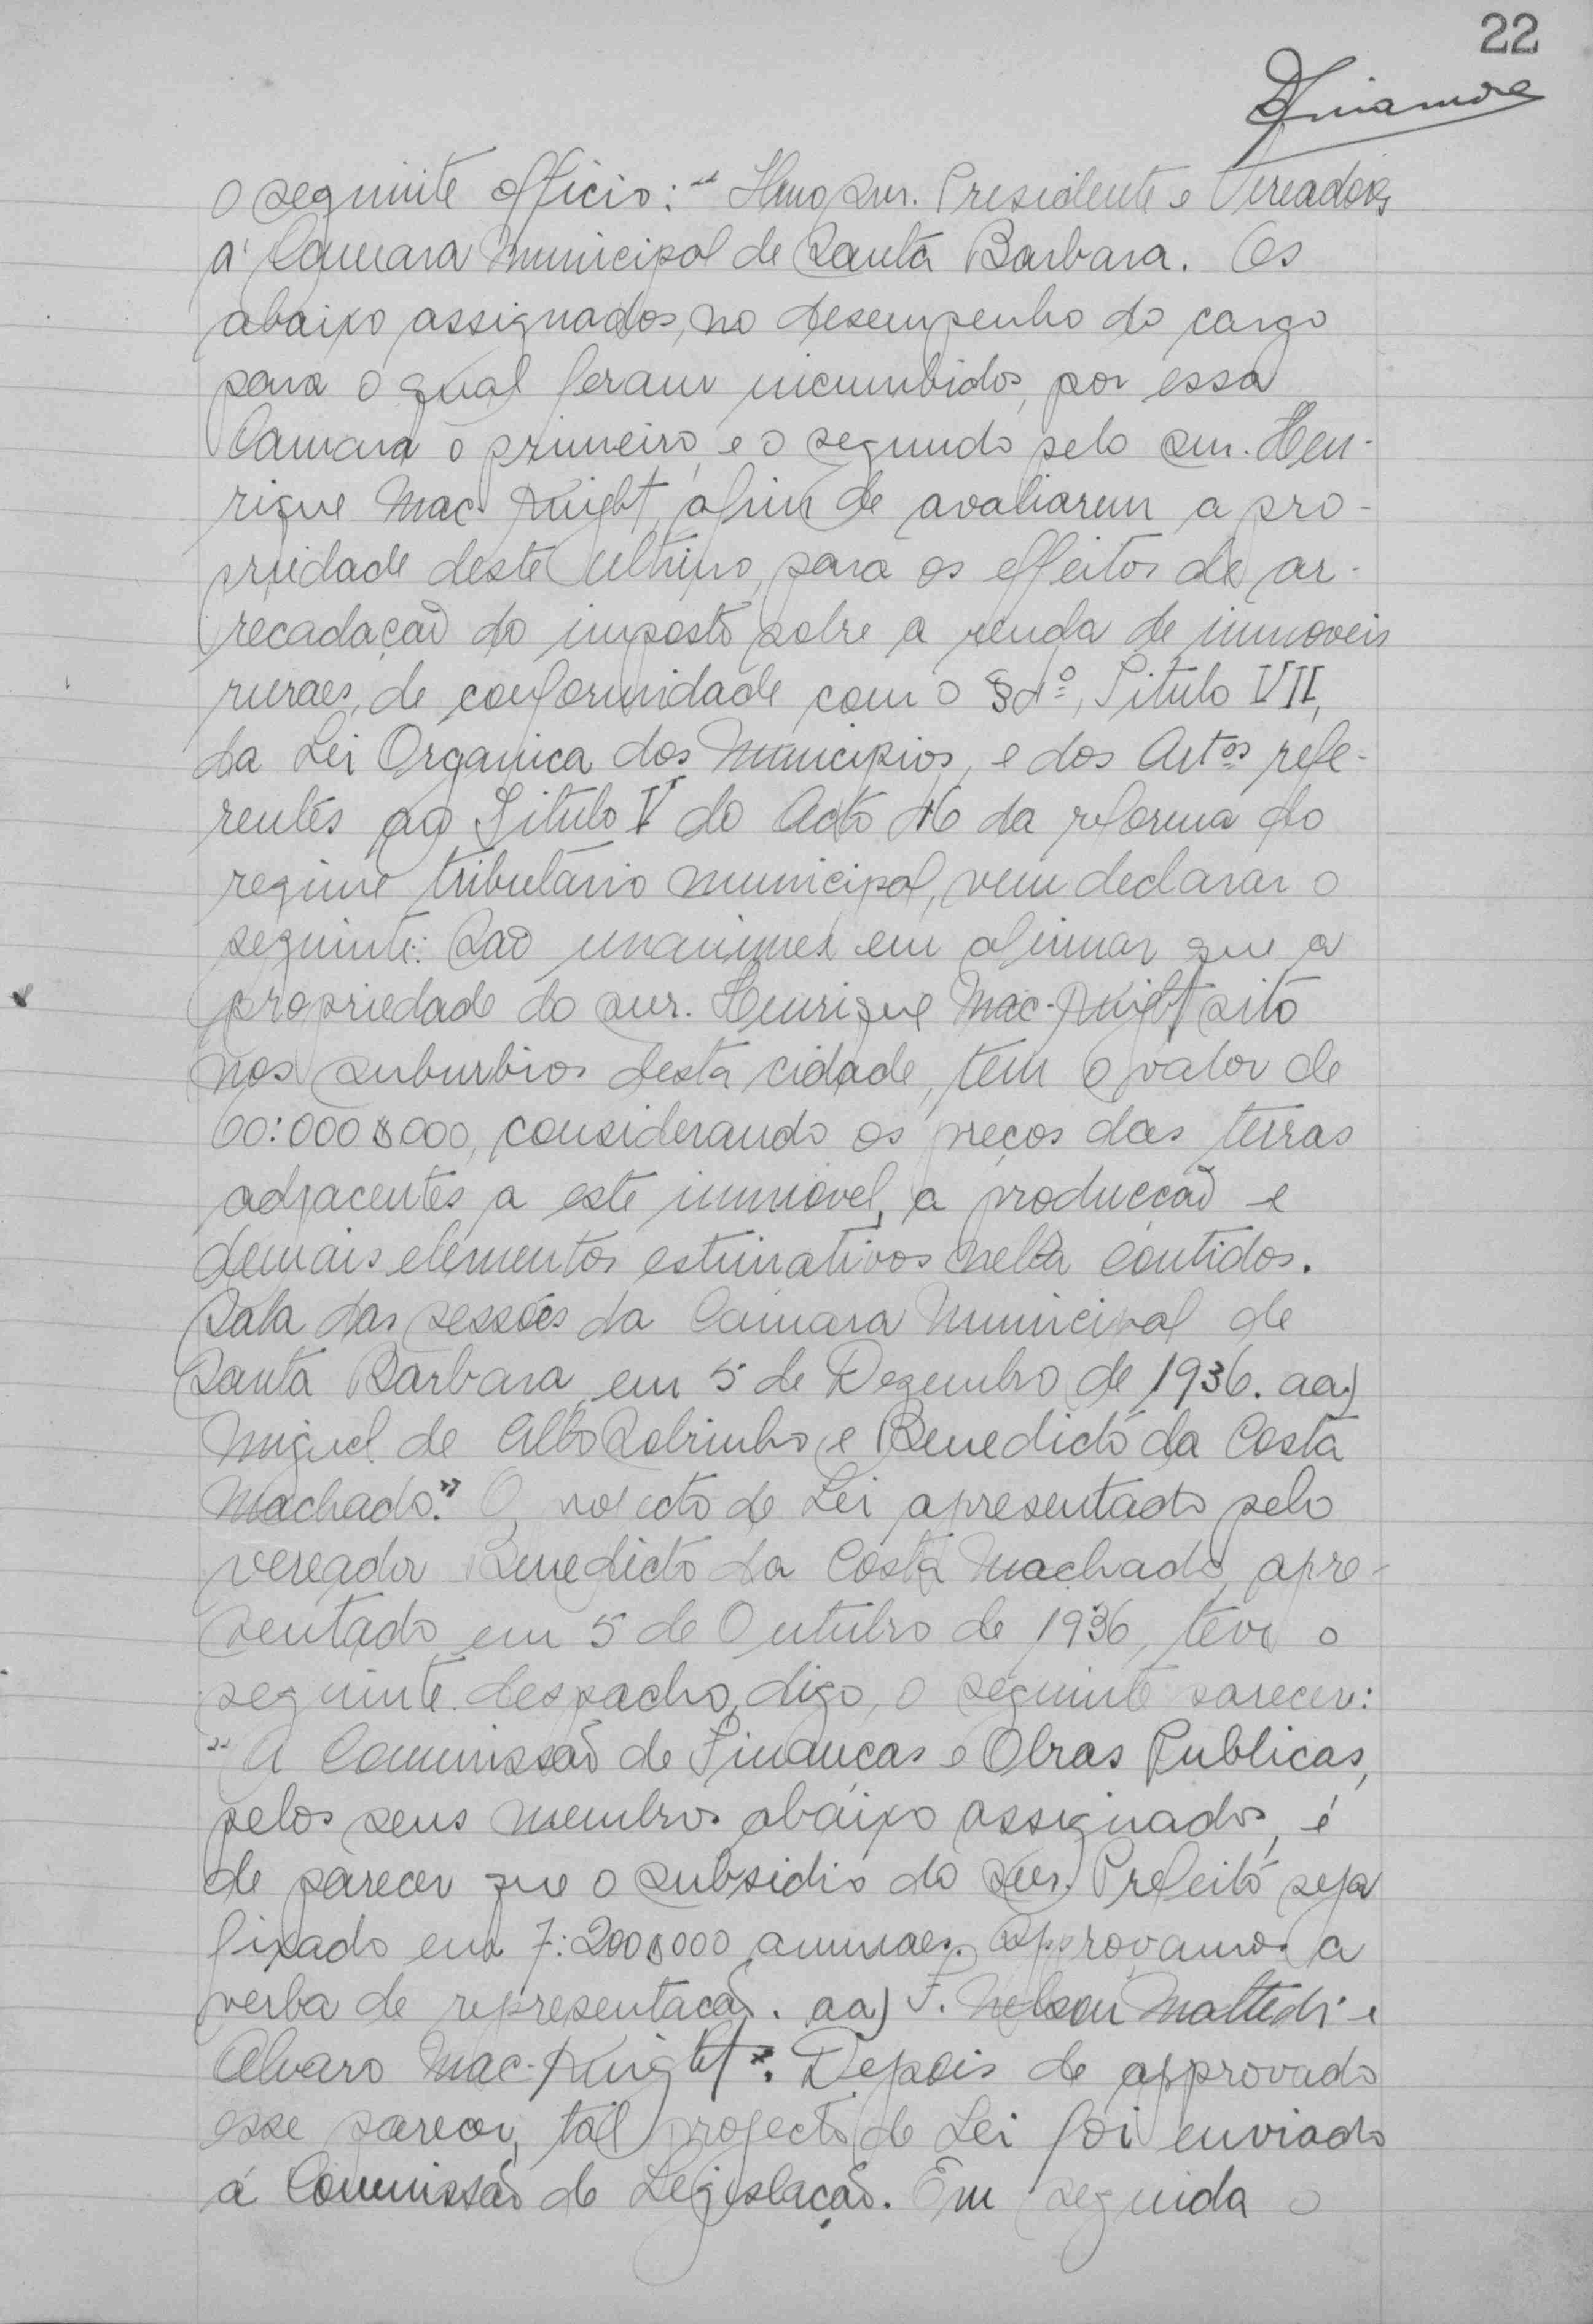 22
o seguinte officio: "Illmo Snr. Presidente e Vereadores
á Camara Municipal de Santa Barbara. Os
abaixo assignados, no desempenho do cargo
para o qual foram incumbidos, por essa
Camara o primeiro, e o segundo pelo snr. Hen-
rique Mac-Knight, afim de avaliarem a pro-
priedade deste ultimo, para os effeitos de ar-
recadação do imposto sobre a renda de immoveis
ruraes, de conformidade com o § Titulo VII,
da Lei Organica dos Municipios, e dos Artos refe-
rentes ao Titulo V do Acto da reforma do
regime tributario municipal, vem declarar o
seguinte: São unanimes em afirmar que a
propriedade do snr. Henrique Mac-Knight sito
nos suburbios desta cidade, tem o valor de
60:000$000, considerando os preços das terras
adjacentes a este immovel, a producção e
demais elementos estimativos nella contidos.
Sala das sessões da Camara Municipal de
Santa Barbara, em 5 de Dezembro de 1936. aa)
Miguel de Sobrinho e Benedicto da Costa
Machado." O projecto de Lei apresentado pelo
vereador Benedicto da Costa Machado, apre-
sentado em 5 de Outubro de 1936, teve o
seguinte despacho, digo, o seguinte parecer:
"A Commissão de Finanças e Obras Publicas,
pelos seus membros abaixo assignados, é
de parecer que o subsidio do Snr. Prefeito seja
fixado em 7:200$000 annuaes. Approvamos a
verba de representação. aa) F. Nelson Mattedi e
Alvaro Mac-Knight". Depois de approvado
esse parecer, tal projecto de Lei foi enviado
á Commissão de Legislação. Em seguida o